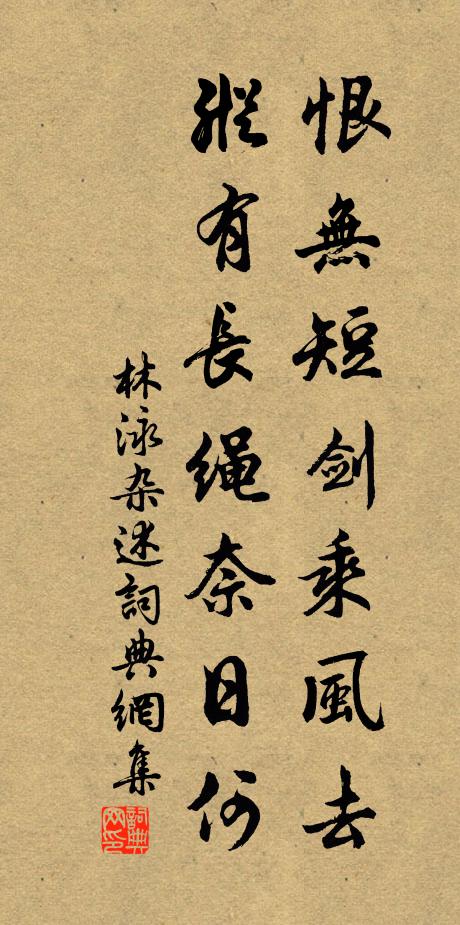 恨無短劍乘風去
縱有長繩奈日何
林泳杂述詞典網集
詞典
网印